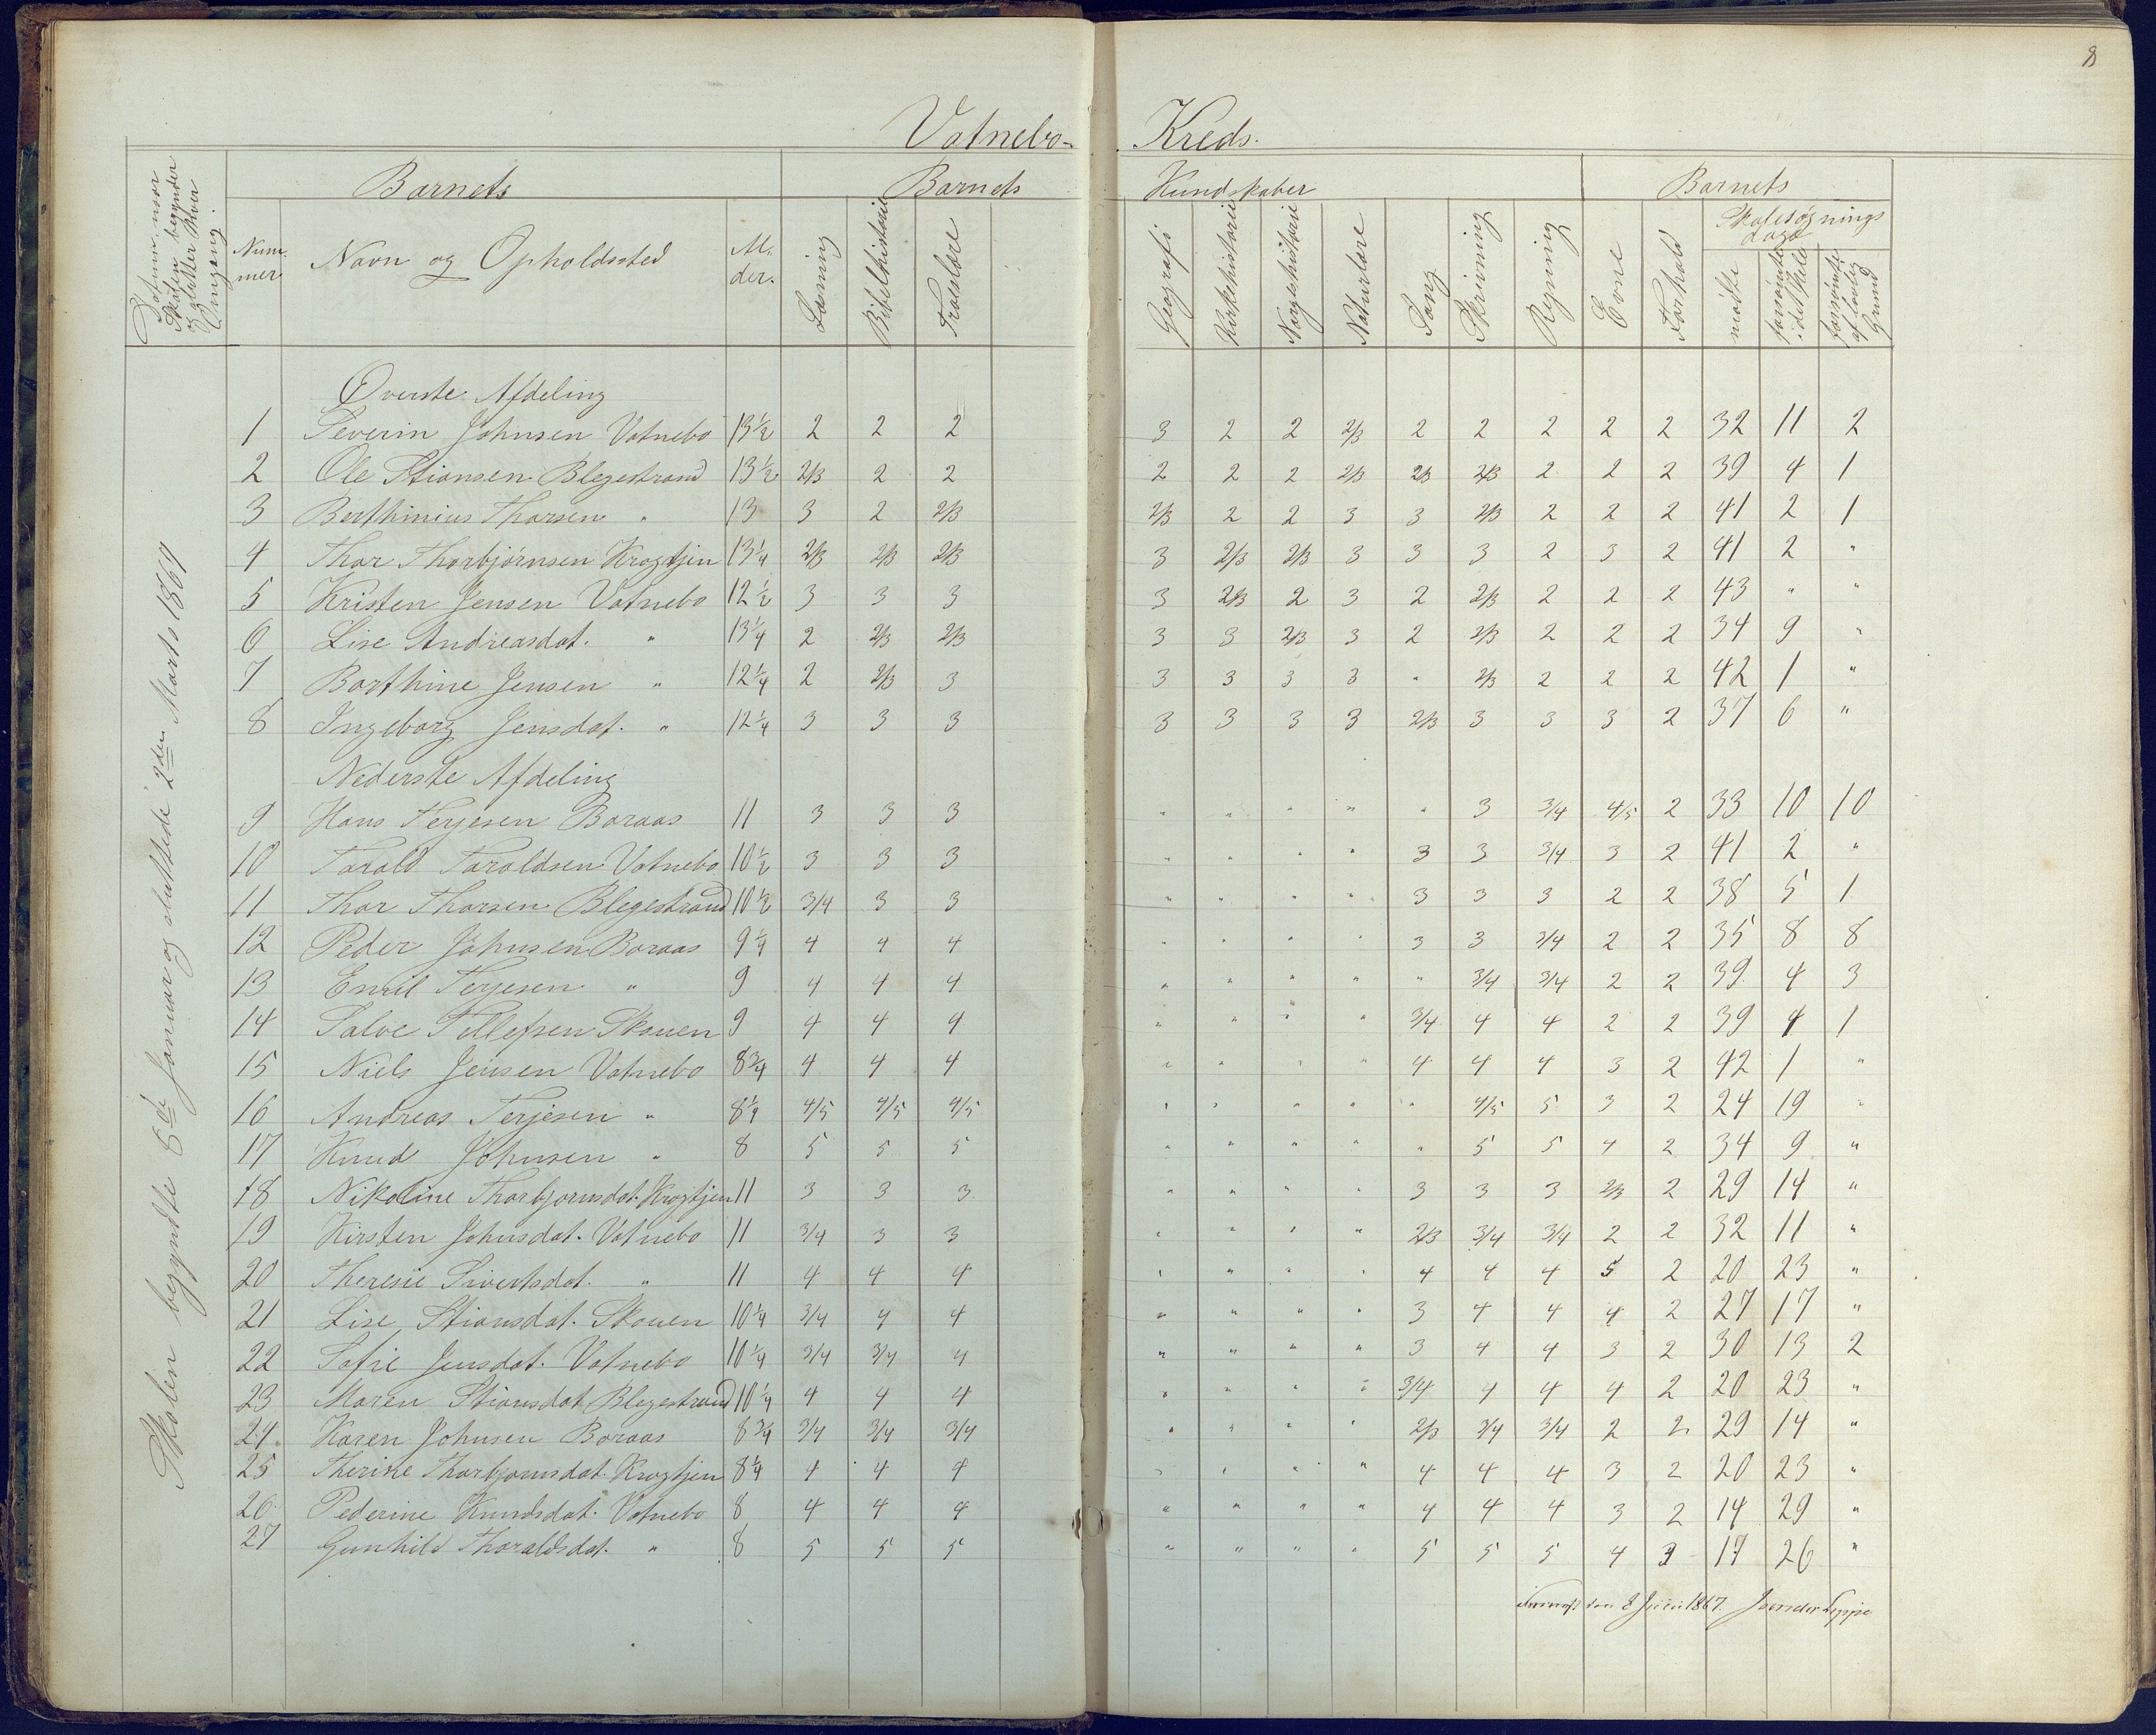 8
Vatnebo- Kreds.
Datum naar Skolen begynder og slutter hver Omgang.
Barnets Barnets Kundskaber Barnets
Num-mer Navn og Opholdssted Al-der. Læsning Bibelhistorie Troeslære Geografi Kirkehistorie Norgeshistorie Naturlære Sang Skrivning Regning Evne Forhold Skolesøgningsdage mødte forsømte i det Hele forsømte af lovlig Grund
Skolen begyndte 8de Januar og sluttede 2den Marts 1867
Øverste Afdeling
1 Severin Johnsen Vatnebo 13½ 2 2 2 3 2 2 2/3 2 2 2 2 2 32 11 2
2 Ole Stiansen Blegestrand 13½ 2/3 2 2 2 2 2 2/3 2/3 2/3 2 2 2 39 4 1
3 Berthinius Thorsen " 13 3 2 2/3 2/3 2 2 3 3 2/3 2 2 2 41 2 1
4 Thor Thorbjørnsen Krogtjen 13¼ 2/3 2/3 2/3 3 2/3 2/3 3 3 3 2 3 2 41 2 "
5 Kristen Jensen Vatnebo 12½ 3 3 3 3 2/3 2 3 2 2/3 2 2 2 43 " "
6 Lise Andreasdat. " 13¼ 2 2/3 2/3 3 3 2/3 3 2 2/3 2 2 2 34 9 "
7 Borthine Jensen " 12¼ 2 2/3 3 3 3 3 3 " 2/3 2 2 2 42 1 "
8 Ingeborg Jensdat. " 12¼ 3 3 3 3 3 3 3 2/3 3 3 3 2 37 6 "
Nederste Afdeling
9 Hans Terjesen Boraas 11 3 3 3 " " " " " 3 3/4 4/5 2 33 10 10
10 Tarald Taraldsen Vatnebo 10½ 3 3 3 " " " " 3 3 3/4 3 2 41 2 "
11 Thor Thorsen Blegestrand 10½ 3/4 3 3 " " " " 3 3 3 2 2 38 5 1
12 Peder Johnsen Boraas 9¼ 4 4 4 " " " " 3 3 3/4 2 2 35 8 8
13 Emil Terjesen " 9 4 4 4 " " " " " 3/4 3/4 2 2 39 4 3
14 Salve Tellefsen Skouen 9 4 4 4 " " " " 3/4 4 4 2 2 39 4 1
15 Niels Jensen Vatnebo 8¾ 4 4 4 " " " " 4 4 4 3 2 42 1 "
16 Andreas Terjesen " 8¼ 4/5 4/5 4/5 " " " " " 4/5 5 3 2 24 19 "
17 Knud Johnsen " 8 5 5 5 " " " " " 5 5 4 2 34 9 "
18 Nikoline Thorbjørnsdat. Krogtjen 11 3 3 3 " " " " 3 3 3 2/3 2 29 14 "
19 Kirsten Johnsdat. Vatnebo 11 3/4 3 3 " " " " 2/3 3/4 3/4 2 2 32 11 "
20 Theresie Sivertsdat. " 11 4 4 4 " " " " 4 4 4 5 2 20 23 "
21 Lise Stiansdat. Skouen 10¼ 3/4 4 4 " " " " 3 4 4 4 2 27 17 "
22 Sofie Jensdat. Vatnebo 10¼ 3/4 3/4 4 " " " " 3 4 4 3 2 30 13 2
23 Maren Stiansdat Blegestrand 10¼ 4 4 4 " " " " 3/4 4 4 4 2 20 23 "
24. Karen Johnsen Boraas 8¾ 3/4 3/4 3/4 " " " " 2/3 3/4 3/4 2 2 29 14 "
25 Therine Thorbjørnsdat. Krogtjen 8¼ 4 4 4 " " " " 4 4 4 3 2 20 23 "
26 Pederine Knudsdat. Vatnebo 8 4 4 4 " " " " 4 4 4 3 2 14 29 "
27 Gunhild Tharaldsdat. " 8 5 5 5 " " " " 5 5 5 4 3 17 26 "
den 8 Juni 1867.